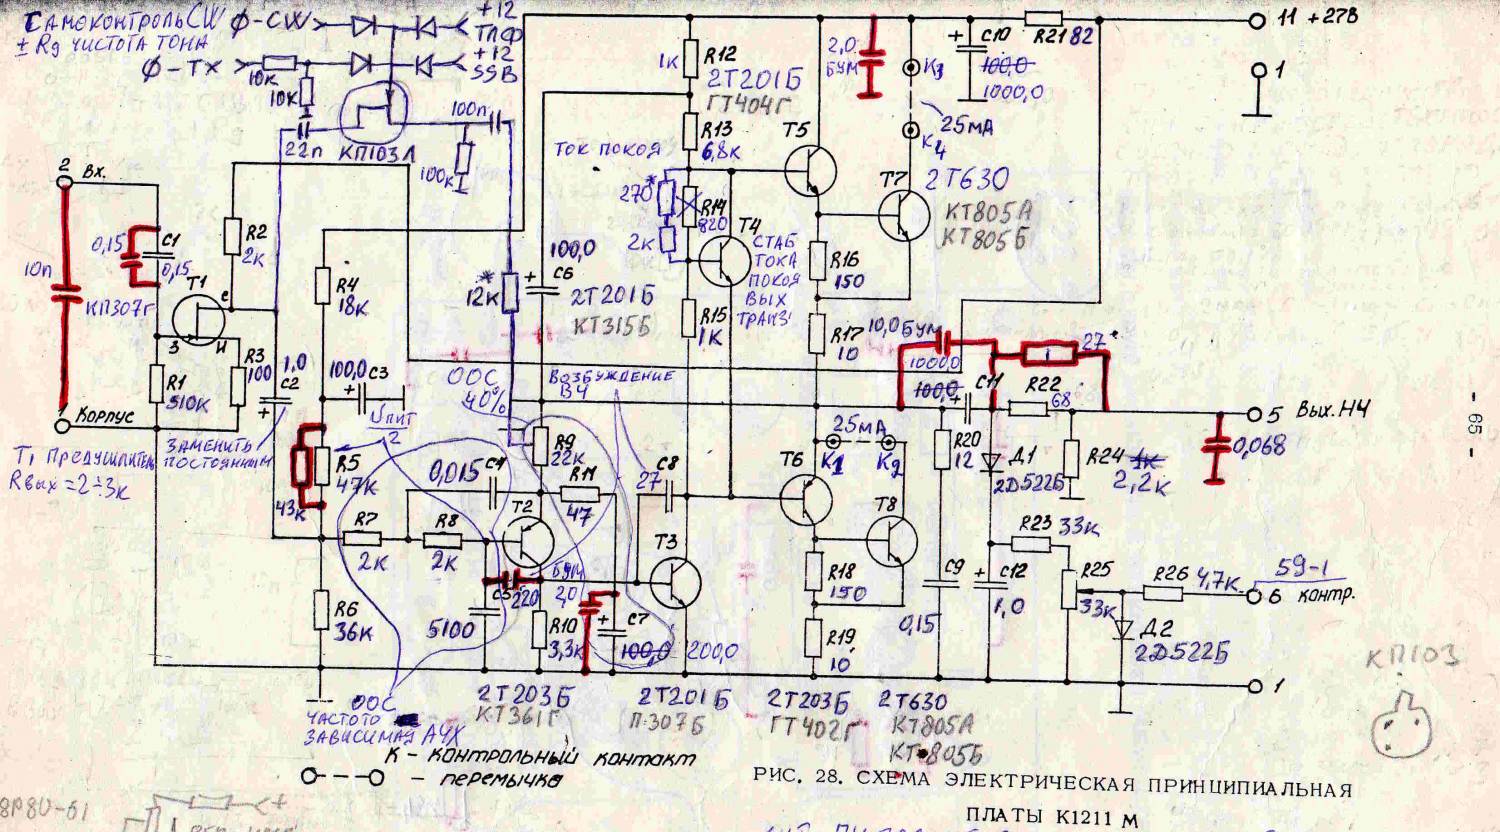 САМОКОНТРОЛЬ CW
± Rg ЧИСТОТА ТОНА
Ф-CW
+12
ТЛФ
Ф-TX
10К
10К
+12
SSB
22п
КП103Л
100п
100к
2 Вх.
10п
0,15
С1
0,15
КП307Г
Т1
с
з
и
R1
510К
R2
2К
R3
100
1,0
С2
1 Корпус
Т1 ПРЕДУСИЛИТЕЛЬ
Rвых = 2÷3к
ЗАМЕНИТЬ
ПОСТОЯННЫМ
R4
18К
100,0 С3
Uпит
2
R5
47К
43К
R6
36К
R7
2К
R8
2К
0,015
С4
5100
С5
220
ООС
40%
*
12К
100,0
С6
2Т201Б
КТ315Б
ВОЗБУЖДЕНИЕ
ВЧ
R9
22К
R11
47
Т2
R10
3,3К
БУМ
2,0
С7
100,0
200,0
С8
27
Т3
ООС
ЧАСТОТО
ЗАВИСИМАЯ АЧХ
2Т203Б
КТ361Г
2Т201Б
П307Б
1К
R12
2Т201Б
ГТ404Г
R13
6,8К
ТОК ПОКОЯ
270*
2К
R14
820
R15
1К
Т4
СТАБ
ТОКА
ПОКОЯ
ВЫХ
ТРАНЗ
Т5
2,0
БУМ
К3
25МА
К4
Т7
2Т630
КТ805А
КТ805Б
R16
150
R17
10
С10
100,0
1000,0
R21 82
11 +27В
1
10,0 БУМ
1000,0
100,0
С11
27*
R22
68
5 Вых.НЧ
0,068
25МА
К1
К2
Т6
Т8
R18
150
R19
10
R20
12
Д1
2Д522Б
R24 1К
2,2К
С9
0,15
С12
1,0
R23 33К
R25
33К
R26 4,7К
59-1
6 контр.
Д2
2Д522Б
1
2Т203Б
ГТ402Г
2Т630
КТ805А
КТ805Б
КП103
- 65 -
К - контрольный контакт
- перемычка
РИС. 28. СХЕМА ЭЛЕКТРИЧЕСКАЯ ПРИНЦИПИАЛЬНАЯ
ПЛАТЫ К1211 М